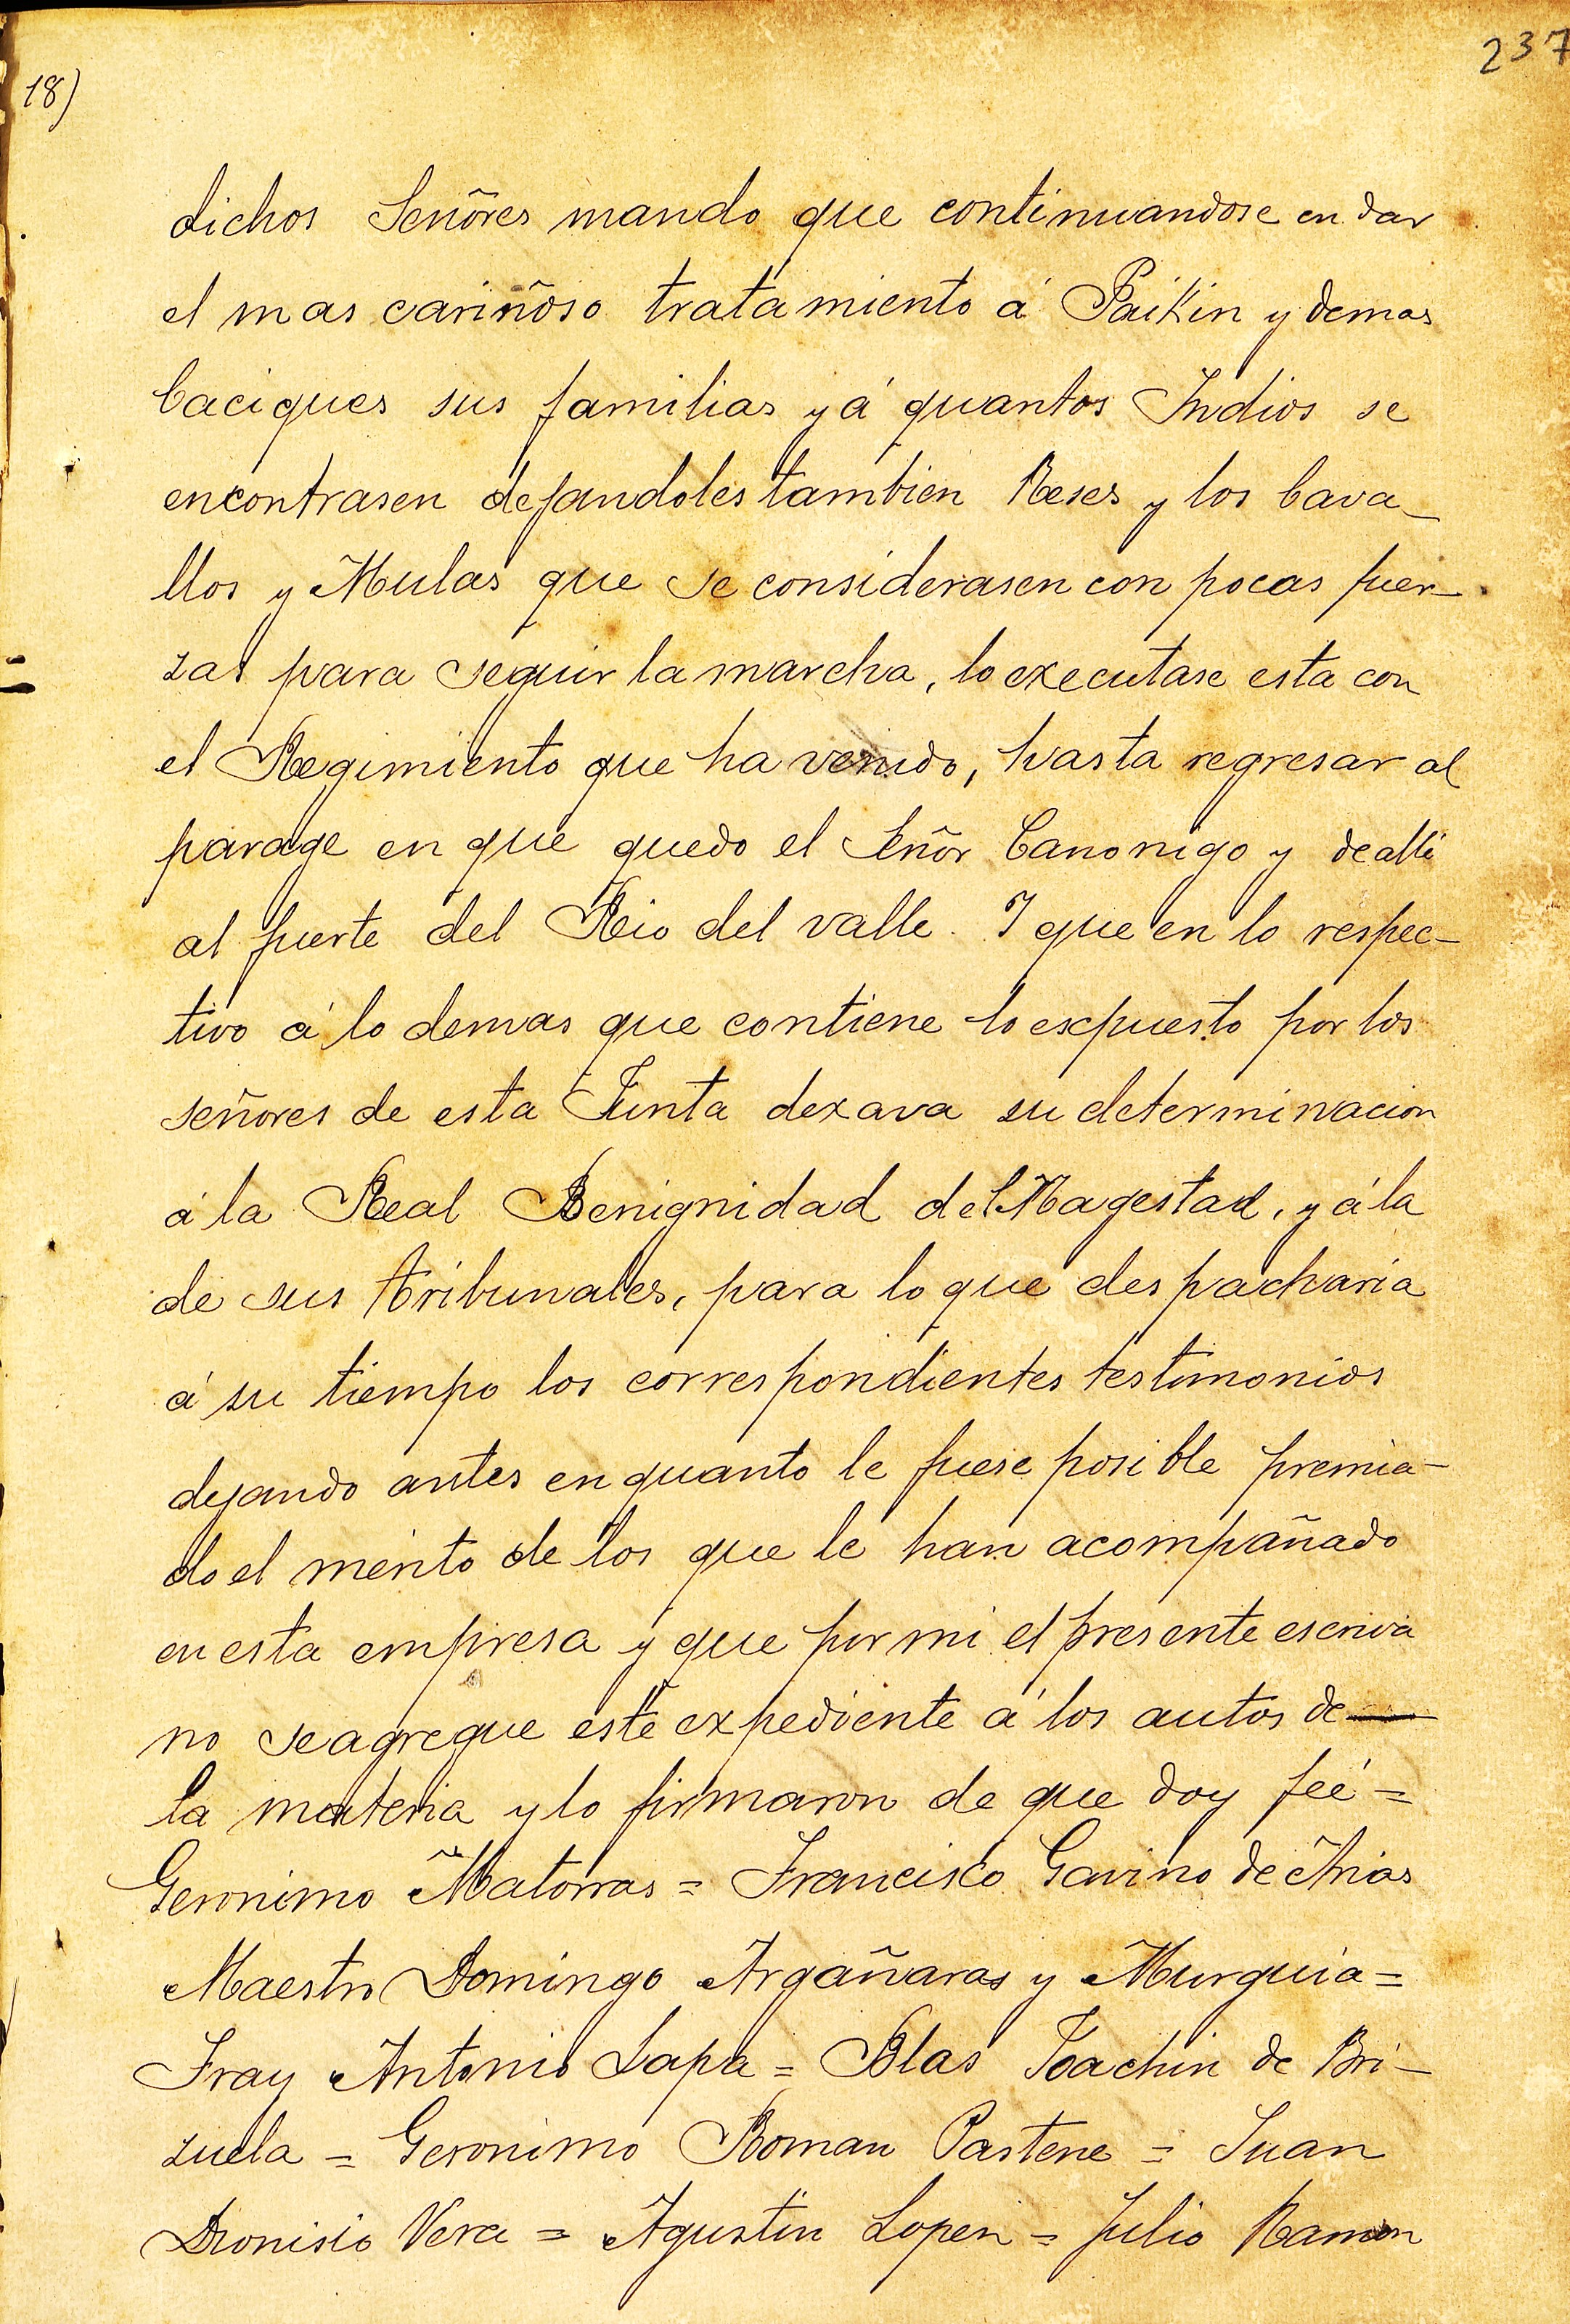 237
18)
dichos Señores mando que continuandose en dar
el mas cariñoso tratamiento á Paikin y demas
Caciques sus familias y á quantos Indios se
encontrasen dejandoles tambien Reses y los Cava_
llos y Mulas que se considerasen con pocas fuer_
zas para seguir la marcha, lo executase esta con
el Regimiento que ha venido, hasta regresar al
parage en que quedo el Señor Canonigo y de alli
al fuerte del Rio del valle. I que en lo respec_
tivo á lo demas que contiene lo expuesto por los
señores de esta Junta dexava su determinacion
á la Real Benignidad del Magestad, y á la
de sus tribunales, para lo que despacharia
á su tiempo los correspondientes testimonios
dejando antes en quanto le fuese posible premia_
do el merito de los que le han acompañado
en esta empresa y que por mi el presente escriva
no se agregue este expediente á los autos de —
la materia y lo firmaron de que doy feé =
Geronimo Matorras = Francisco Gavino de Arias
Maestro Domingo Argañaras y Murguia =
Fray Antonio Lapa = Blas Joachin de Bri_
zuela = Geronimo Roman Pastene = Juan
Dionisio Vera = Agustin Lopen = Julio Ramon